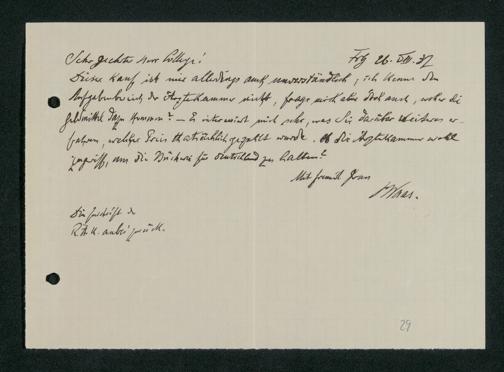 Sehr geehrter Herr Collega! Frbg 26. VIII. 37
Dieser Kauf ist mir allerdings auch unverständlich, ich kenne den
Aufgabenbereich der Ärztekammer nicht, frage mich aber doch auch, woher die
Geldmittel dazu kommen? – Es interessiert mich sehr, was Sie darüber weiteres er-
fahren, welcher Preis thatsächlich gezahlt wurde. Ob die Ärztekammer wohl
zugriff, um die Bücherei für Deutschland zu halten?
Mit freundl. Gruss
Die Zuschrift der
R.Ä.K. anbei zurück.
29